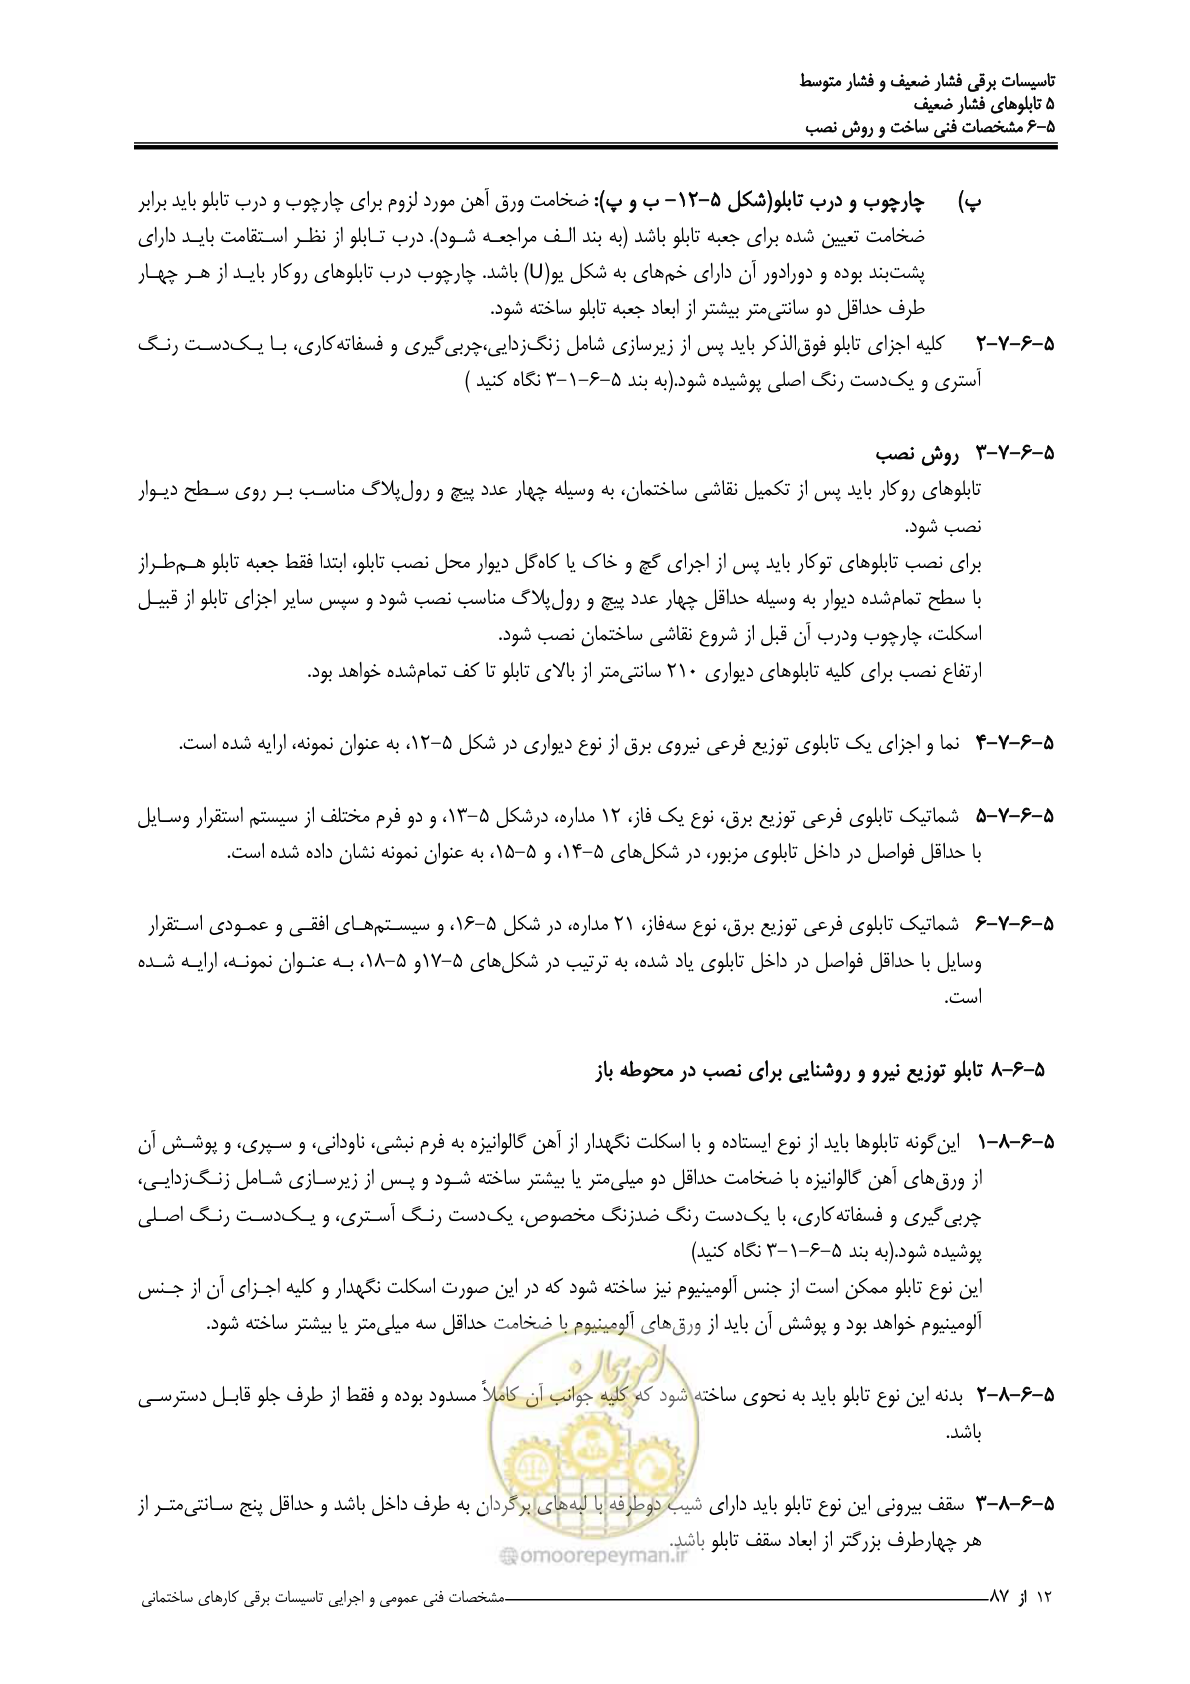 تاسیسات برقی فشار ضعیف و فشار متوسط
۵ تابلوهای فشار ضعیف
۵-۶ مشخصات فنی ساخت و روش نصب
پ) چارچوب و درب تابلو(شکل ۵-۱۲- ب و پ): ضخامت ورق آهن مورد لزوم برای چارچوب و درب تابلو باید برابر
ضخامت تعیین شده برای جعبه تابلو باشد (به بند الف مراجعه شود). درب تابلو از نظر استقامت باید دارای
پشت‌بند بوده و دورادور آن دارای خم‌های به شکل یو(U) باشد. چارچوب درب تابلوهای روکار باید از هر چهار
طرف حداقل دو سانتی‌متر بیشتر از ابعاد جعبه تابلو ساخته شود.
۵-۶-۷-۲ کلیه اجزای تابلو فوق‌الذکر باید پس از زیرسازی شامل زنگ‌زدایی،چربی‌گیری و فسفاته‌کاری، با یک‌دست رنگ
آستری و یک‌دست رنگ اصلی پوشیده شود.(به بند ۵-۶-۱-۳ نگاه کنید )
۵-۶-۷-۳ روش نصب
تابلوهای روکار باید پس از تکمیل نقاشی ساختمان، به وسیله چهار عدد پیچ و رول‌پلاگ مناسب بر روی سطح دیوار
نصب شود.
برای نصب تابلوهای توکار باید پس از اجرای گچ و خاک یا کاه‌گل دیوار محل نصب تابلو، ابتدا فقط جعبه تابلو هم‌طراز
با سطح تمام‌شده دیوار به وسیله حداقل چهار عدد پیچ و رول‌پلاگ مناسب نصب شود و سپس سایر اجزای تابلو از قبیل
اسکلت، چارچوب ودرب آن قبل از شروع نقاشی ساختمان نصب شود.
ارتفاع نصب برای کلیه تابلوهای دیواری ۲۱۰ سانتی‌متر از بالای تابلو تا کف تمام‌شده خواهد بود.
۵-۶-۷-۴ نما و اجزای یک تابلوی توزیع فرعی نیروی برق از نوع دیواری در شکل ۵-۱۲، به عنوان نمونه، ارایه شده است.
۵-۶-۷-۵ شماتیک تابلوی فرعی توزیع برق، نوع یک فاز، ۱۲ مداره، درشکل ۵-۱۳، و دو فرم مختلف از سیستم استقرار وسایل
با حداقل فواصل در داخل تابلوی مزبور، در شکل‌های ۵-۱۴، و ۵-۱۵، به عنوان نمونه نشان داده شده است.
۵-۶-۷-۶ شماتیک تابلوی فرعی توزیع برق، نوع سه‌فاز، ۲۱ مداره، در شکل ۵-۱۶، و سیستم‌های افقی و عمودی استقرار
وسایل با حداقل فواصل در داخل تابلوی یاد شده، به ترتیب در شکل‌های ۵-۱۷و ۵-۱۸، به عنوان نمونه، ارایه شده
است.
۵-۶-۸ تابلو توزیع نیرو و روشنایی برای نصب در محوطه باز
۵-۶-۸-۱ این‌گونه تابلوها باید از نوع ایستاده و با اسکلت نگهدار از آهن گالوانیزه به فرم نبشی، ناودانی، و سپری، و پوشش آن
از ورق‌های آهن گالوانیزه با ضخامت حداقل دو میلی‌متر یا بیشتر ساخته شود و پس از زیرسازی شامل زنگ‌زدایی،
چربی‌گیری و فسفاته‌کاری، با یک‌دست رنگ ضدزنگ مخصوص، یک‌دست رنگ آستری، و یک‌دست رنگ اصلی
پوشیده شود.(به بند ۵-۶-۱-۳ نگاه کنید)
این نوع تابلو ممکن است از جنس آلومینیوم نیز ساخته شود که در این صورت اسکلت نگهدار و کلیه اجزای آن از جنس
آلومینیوم خواهد بود و پوشش آن باید از ورق‌های آلومینیوم با ضخامت حداقل سه میلی‌متر یا بیشتر ساخته شود.
۵-۶-۸-۲ بدنه این نوع تابلو باید به نحوی ساخته شود که کلیه جوانب آن کاملاً مسدود بوده و فقط از طرف جلو قابل دسترسی
باشد.
۵-۶-۸-۳ سقف بیرونی این نوع تابلو باید دارای شیب دوطرفه با لبه‌های برگردان به طرف داخل باشد و حداقل پنج سانتی‌متر از
هر چهارطرف بزرگتر از ابعاد سقف تابلو باشد.
امور پیمان
@omoorepeyman.ir
۱۲ از ۸۷ مشخصات فنی عمومی و اجرایی تاسیسات برقی کارهای ساختمانی